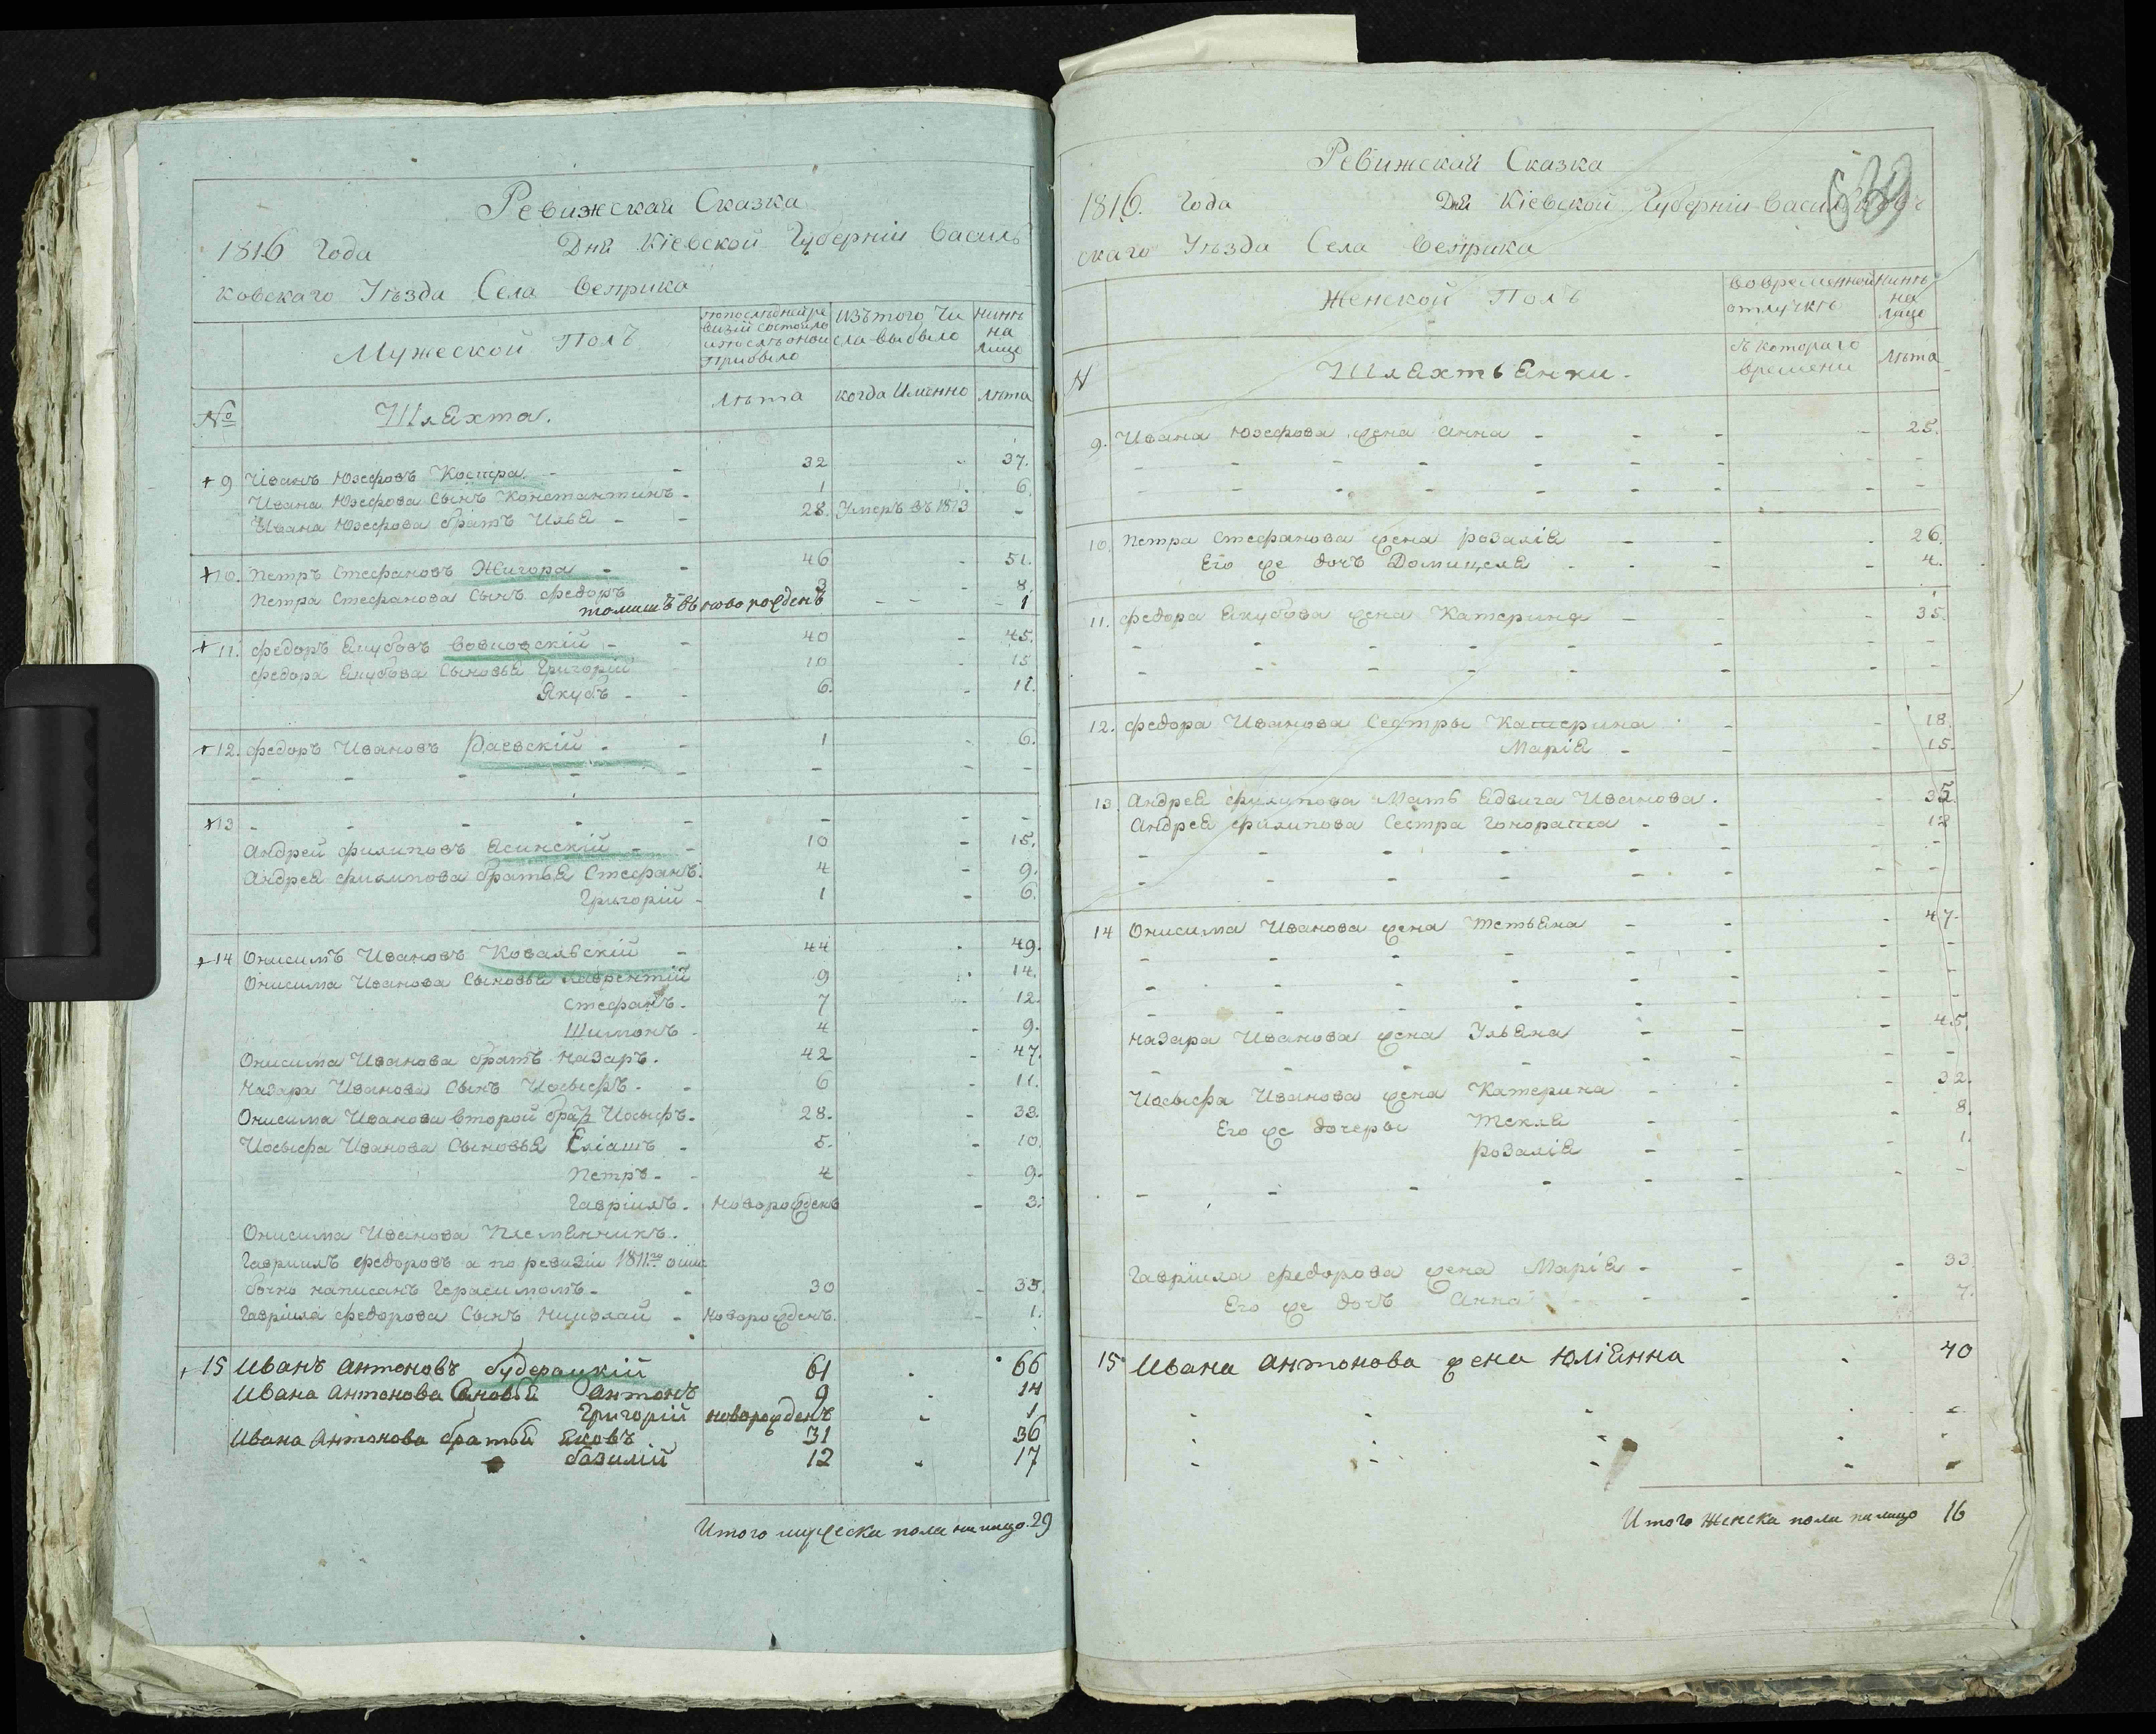 Ревижскай Сказка
1816 Года Дня Кіевской Губерніи Василь
ковскаго Уѣзда Села Веприка
Мужеской Полъ
по последней ре
визіи состояло
и после оной
прибыло
изъ того Чи
сла выбыло
нынѣ
на
лицо
№
Шляхта.
лѣта
когда Именно
лѣта
+ 9 Иванъ Юзефовъ Костра - - 32 - 37.
Ивана Юзефова Сынъ Константинъ - 1 - 6.
Ивана Юзефова братъ Илья - - 28. Умеръ въ 1813 -
+ 10. Петръ Стефановъ Жигора - - 46 - 51.
Петра Стефанова Сынъ федоръ 3 - 8.
томашъ новорожденъ - - - 1
+ 11. федоръ Якубовъ Вовковскій - - 40 - 45.
федора Якубова Сыновья Григорій 10 - 15
Якубъ - - 6. - 11.
+ 12. федоръ Ивановъ Раевскій - - 1 - 6.
- - - - - - - -
+ 13 - - - - - - - -
Андрей филиповъ Ясинскій - - 10 - 15.
Андрея филипова братья Стефанъ. 4 - 9.
Григорій - 1 - 6.
+ 14 Онисимъ Ивановъ Ковальскій - 44 - 49.
Онисима Иванова Сыновья Лаврентій 9 - 14.
Стефанъ. 7 - 12.
Шимонъ - 4 - 9.
Онисима Иванова братъ Назаръ. 42 - 47.
Назара Иванова Сынъ Иосыфъ. - 6 - 11.
Онисима Иванова второй братъ Иосыфъ. 28. - 33.
Иосыфа Иванова Сыновья Еліашъ - 5. - 10.
Петръ - - 4 - 9.
Гавріилъ. новорожденъ - 3.
Онисима Иванова Племянникъ.
Гавриилъ федоровъ а по ревизіи 1811го ошы
бочно написанъ Герасимомъ - - 30 - 35.
Гавріила федорова Сынъ Николай - новорожденъ. - 1.
+ 15 Иванъ Антоновъ будерацкій 61 - 66
Ивана Антонова Сыновья Антонъ 9 - 14
Григорій новорожденъ - 1
Ивана Антонова братья Яковъ 31 36
базилій 12 - 17
Итого мужеска пола на лицо. 29
Ревижскай Сказка
1816. Года Дня Кіевской Губерніи Василь
скаго Уѣзда Села Веприка
Женской Полъ
во временной
отлучкѣ
нынѣ
на
лицо
N
Шляхтянки.
съ котораго
времени
лѣта
9. Ивана Юзефова жена Анна - - - - 25.
- - - - - - - -
- - - - - - - -
10. Петра Стефанова жена Розалія - - - 26.
Его же дочъ Домицеля - - - - 4.
11. федора Якубова жена Катерина - - - 35.
- - - - - - - -
- - - - - - - -
12. федора Иванова Сестры Катерина - - - 18.
Марія - - - 15.
13. Андрея филипова Мать Ядвига Иванова. - 35.
Андрея филипова Сестра Гонората - - - 12
- - - - - - - -
- - - - - - - -
14 Онисима Иванова жена Тетьяна - - - 47.
- - - - - - - -
- - - - - - - -
- - - - - - - -
Назара Иванова жена Ульяна - - - 45.
- - - - - - - -
Иосыфа Иванова жена Катерина - - - 32.
Его же дочеры Текля - - - 8.
Розалія - - - 1.
- - - - - - - -
Гавріила федорова жена Марія - - - 33
Его же дочъ Анна - - - - 7.
15 Ивана Антонова жена Юліянна - 40
- - - - -
- - - - -
- - - - -
Итого Женска пола на лицо 16